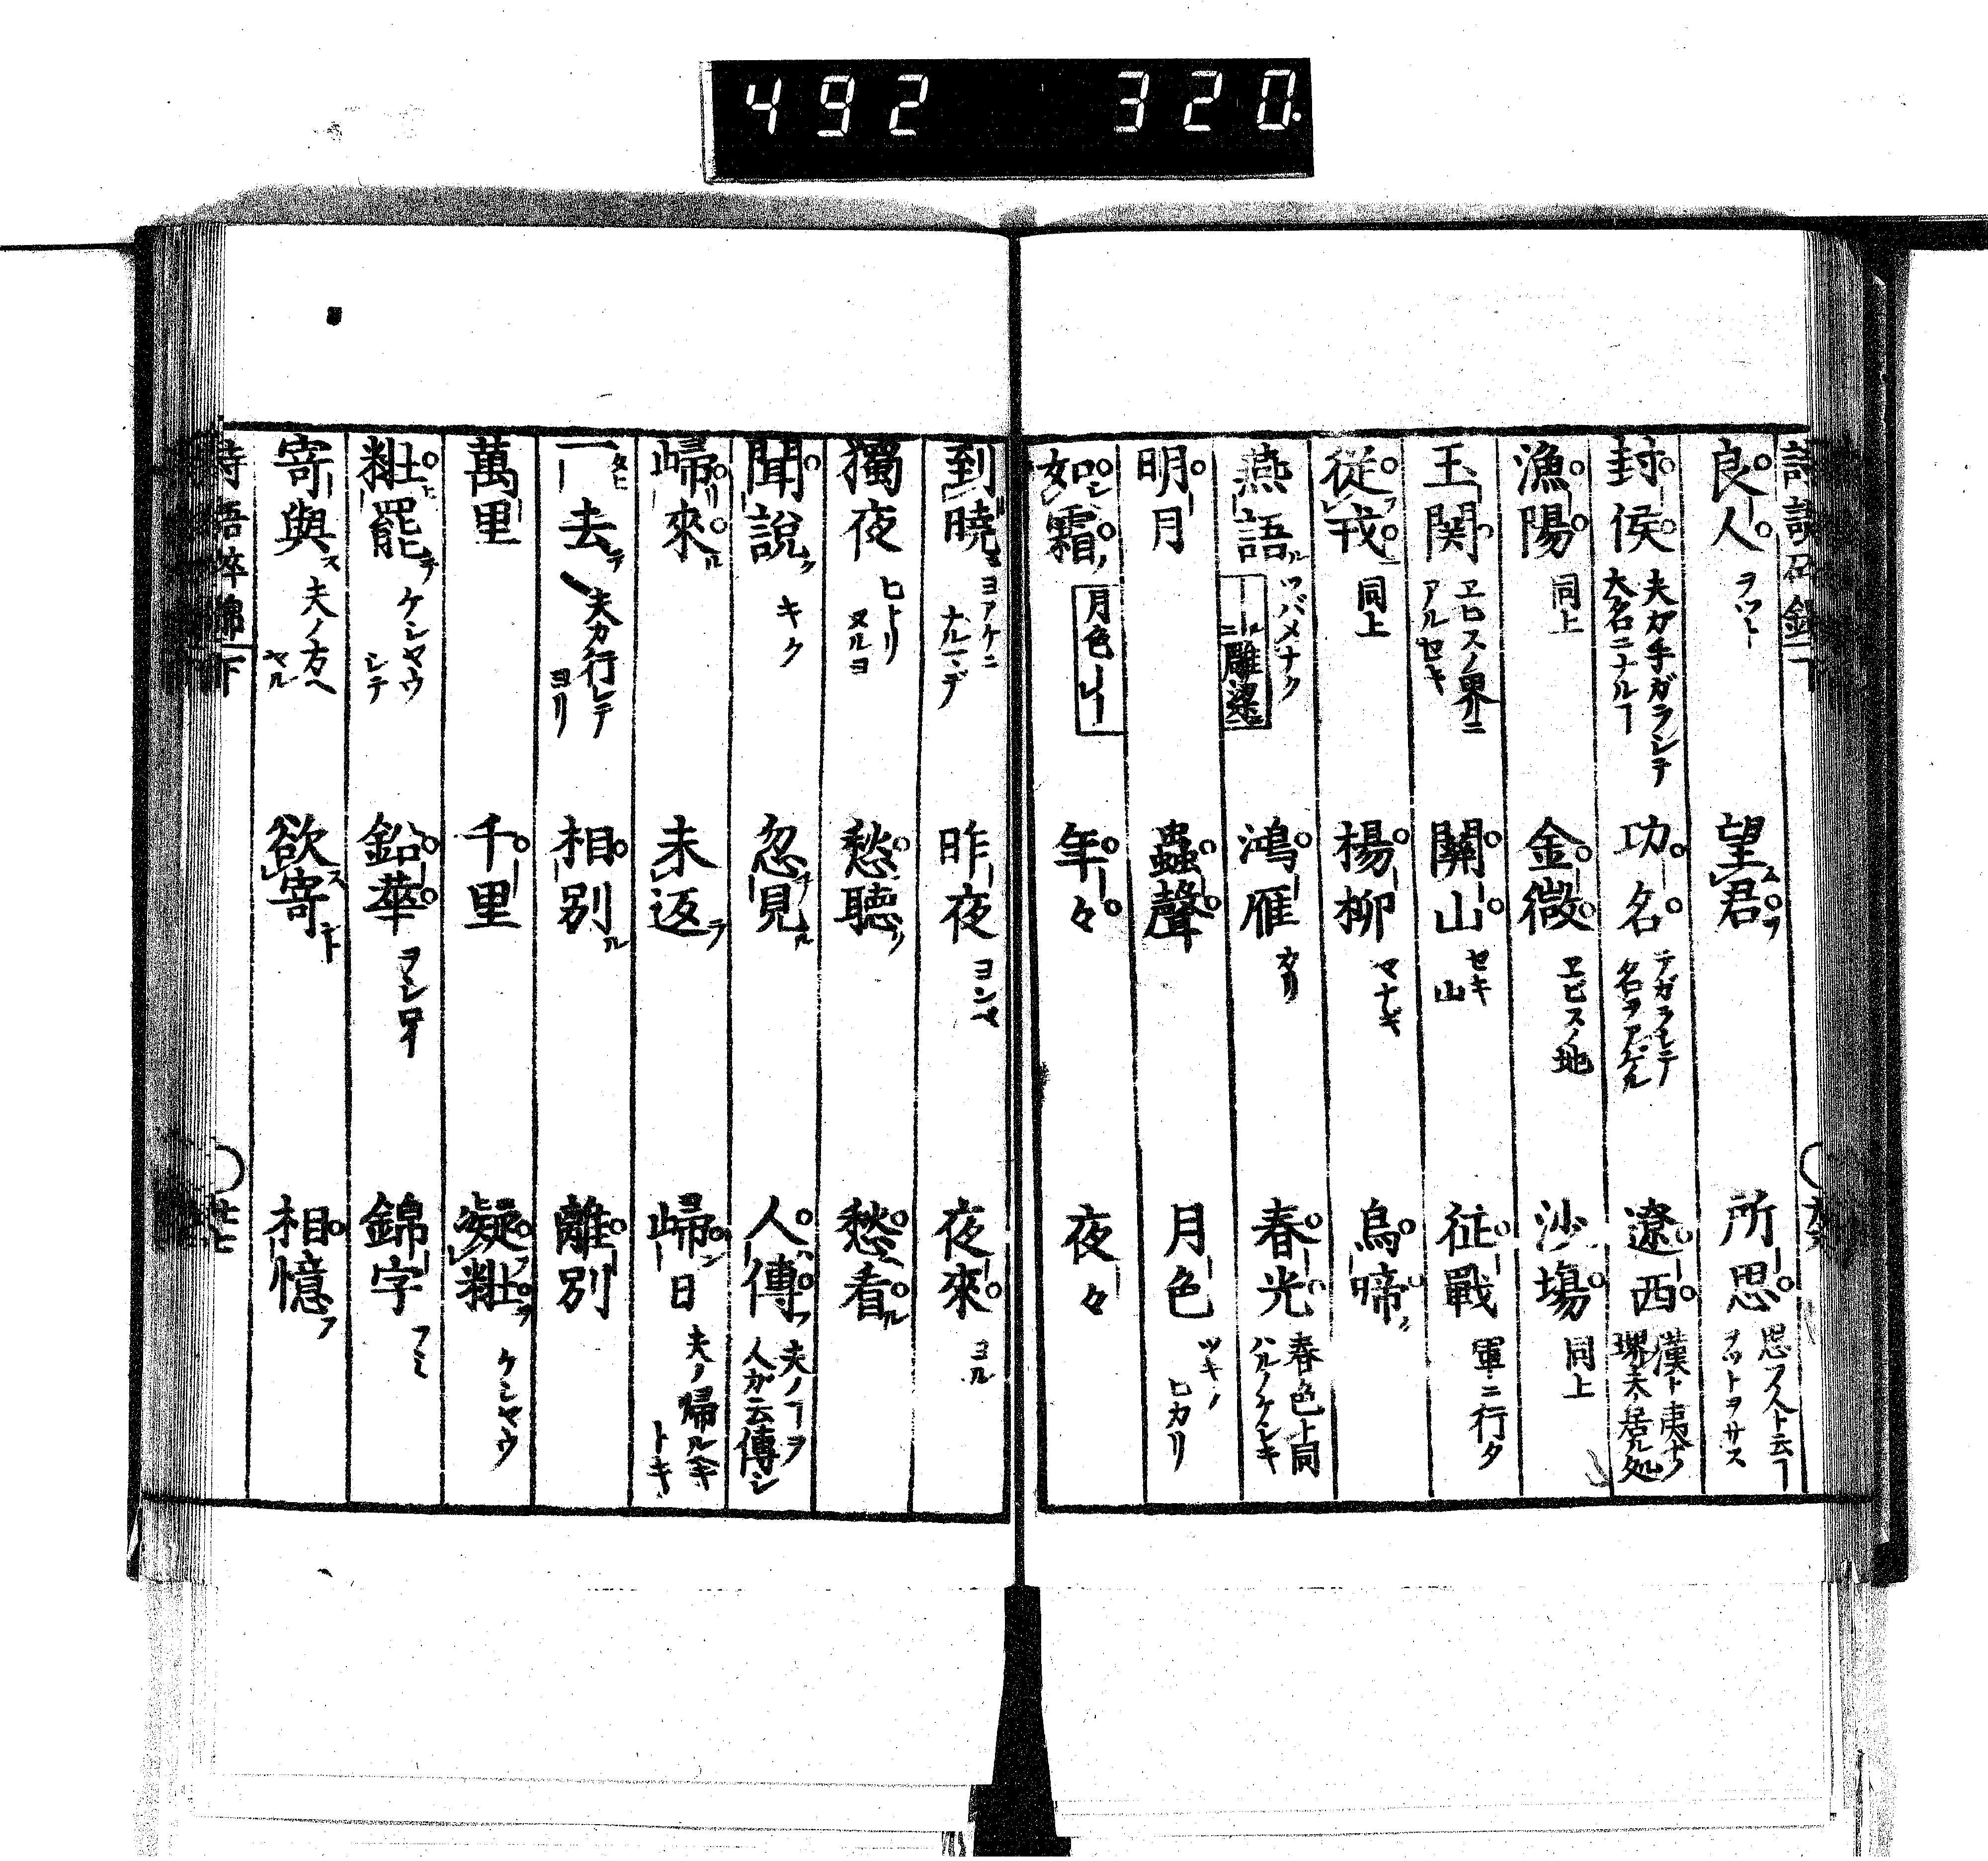 492 320.
良人 ヲット 望君 所思 思フ人ト云フ ヲットヲサス
封侯 夫ガ手ガラシテ 大名ニナルヿ 功名 テガラシテ 名ヲアゲル 遼西
漁陽 同上 金微 ヱビスノ地 沙塲 同上
玉関 ヱビスノ界ニ アルセキ 關山 セキ 山 征戰 軍ニ行タ
從戎 同上 楊柳 ヤナギ 烏啼
燕語 ツバメナク 鴻雁 カリ 春光 春色ト同 ハルノケシキ
明月 蟲聲 月色 ツキノ ヒカリ
如霜 月色 年々 夜々
到曉 ヨアケニ ナルマデ 昨夜 ヨンベ 夜來 ヨル
獨夜 ヒトリ ヌルヨ 愁聽 愁看
聞說 キク 忽見 人傳 夫ノヿヲ 人ガ云傳シ
歸來 未返 歸日 夫ノ帰ル トキ
一去 夫カ行レテ ヨリ 相別 離別
萬里 千里 凝粧 ケシヤウ
粧罷 ケシヤウ シテ 鉛華 ヲシロイ 錦字 フミ
寄與 夫ノ方ヘ ヤル 欲寄 相憶